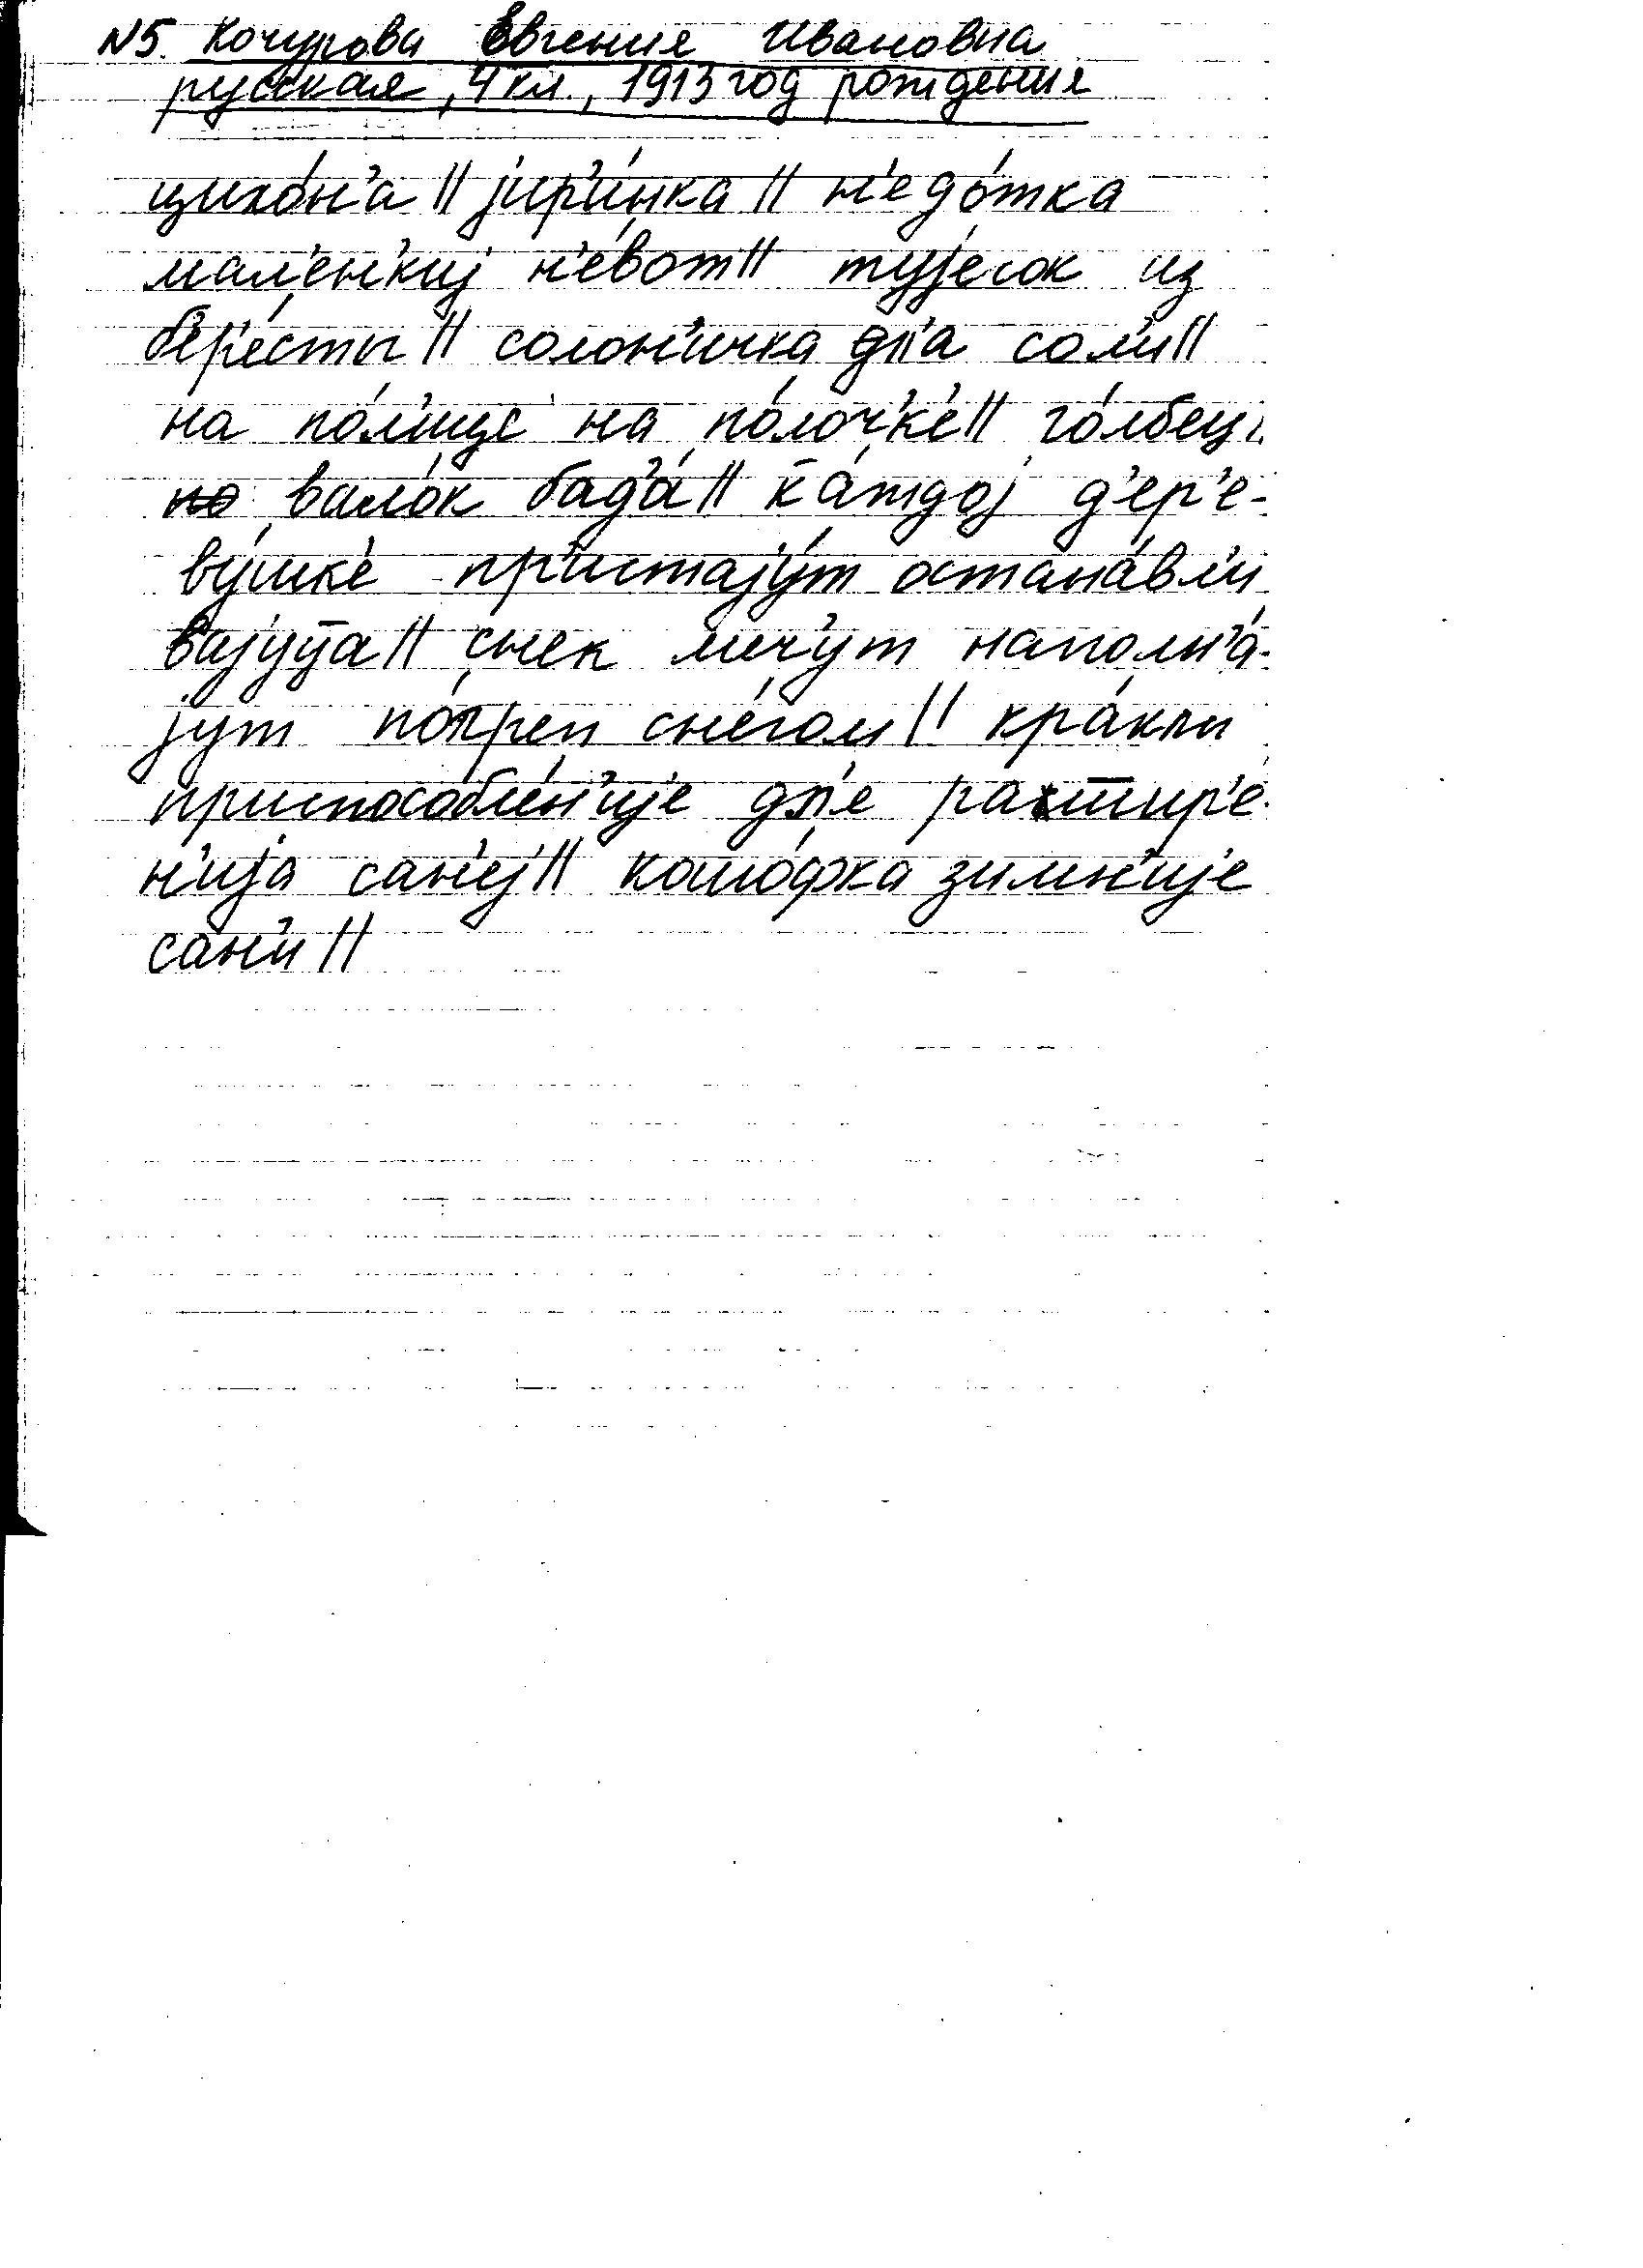 N5. Кочурова Евгения Ивановна
русская, 4 кл., 1913 год рождения
цихо́н'а || јир'и́нка || н'едо́тка
мал'ен'киј н'е́вот || тује́сок из
б'ер'е́сты || солон'ичка дл'а сол'и ||
на по́л'ице на по́лоч'к'е || го́лбец
вало́к бад'а́ || ка́ждој д'ер'е-
ву́шк'е пр'истају́т остана́вл'и
вајуц̄а || снек меч'ут наполн'а́-
јут по́греп сн'е́гом || кра́кли
приспособл'е́н'ије дл'е расшир'е-
н'ија сан'еј || кошо́фка зимн'ије
са́н'и ||